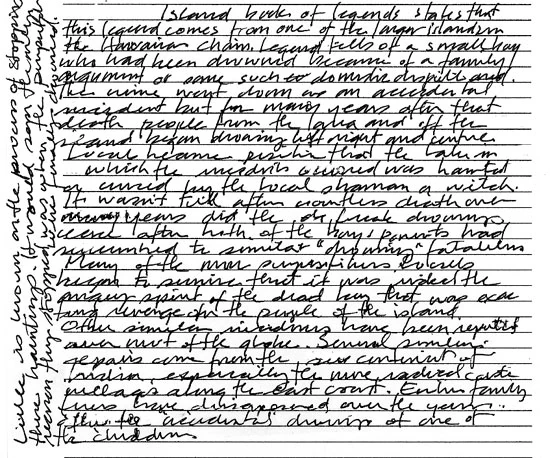 Island book of legends states that
this legend comes from one of the larger islands in
the Hawaiian chain. Legend tells of a small boy
who had been drowned because of a family
argument or some such domestic dispute and.
The crime went down as an accidental
incident but for many years after that
death people from the area and off the
island began drowning left right and centre
Local became positive that the lake in
which the incidents occured was haunted
or cursed by the local shaman or witch.
It wasn't till after countless death over
many years did the freak drownings
cease after both of the boys parents had
succumbed to similar "drowning" fatalities
Many of the more superstitious locals
began to surmise that it was indeed the
angry spirit of the dead boy that was exac
ting revenge on the people of the island
Other similar incidences have been reported
over most of the globe. Several similar
reports come from the sub continent of
India, especially the more radical caste
villages along the East coast. Entire family
lines have disappeared over the years..
after the accidental drowning of one of
the children
Little is known on the process of stopping
these hauntings. It would seem the
reason they stopped were when the perpetrators